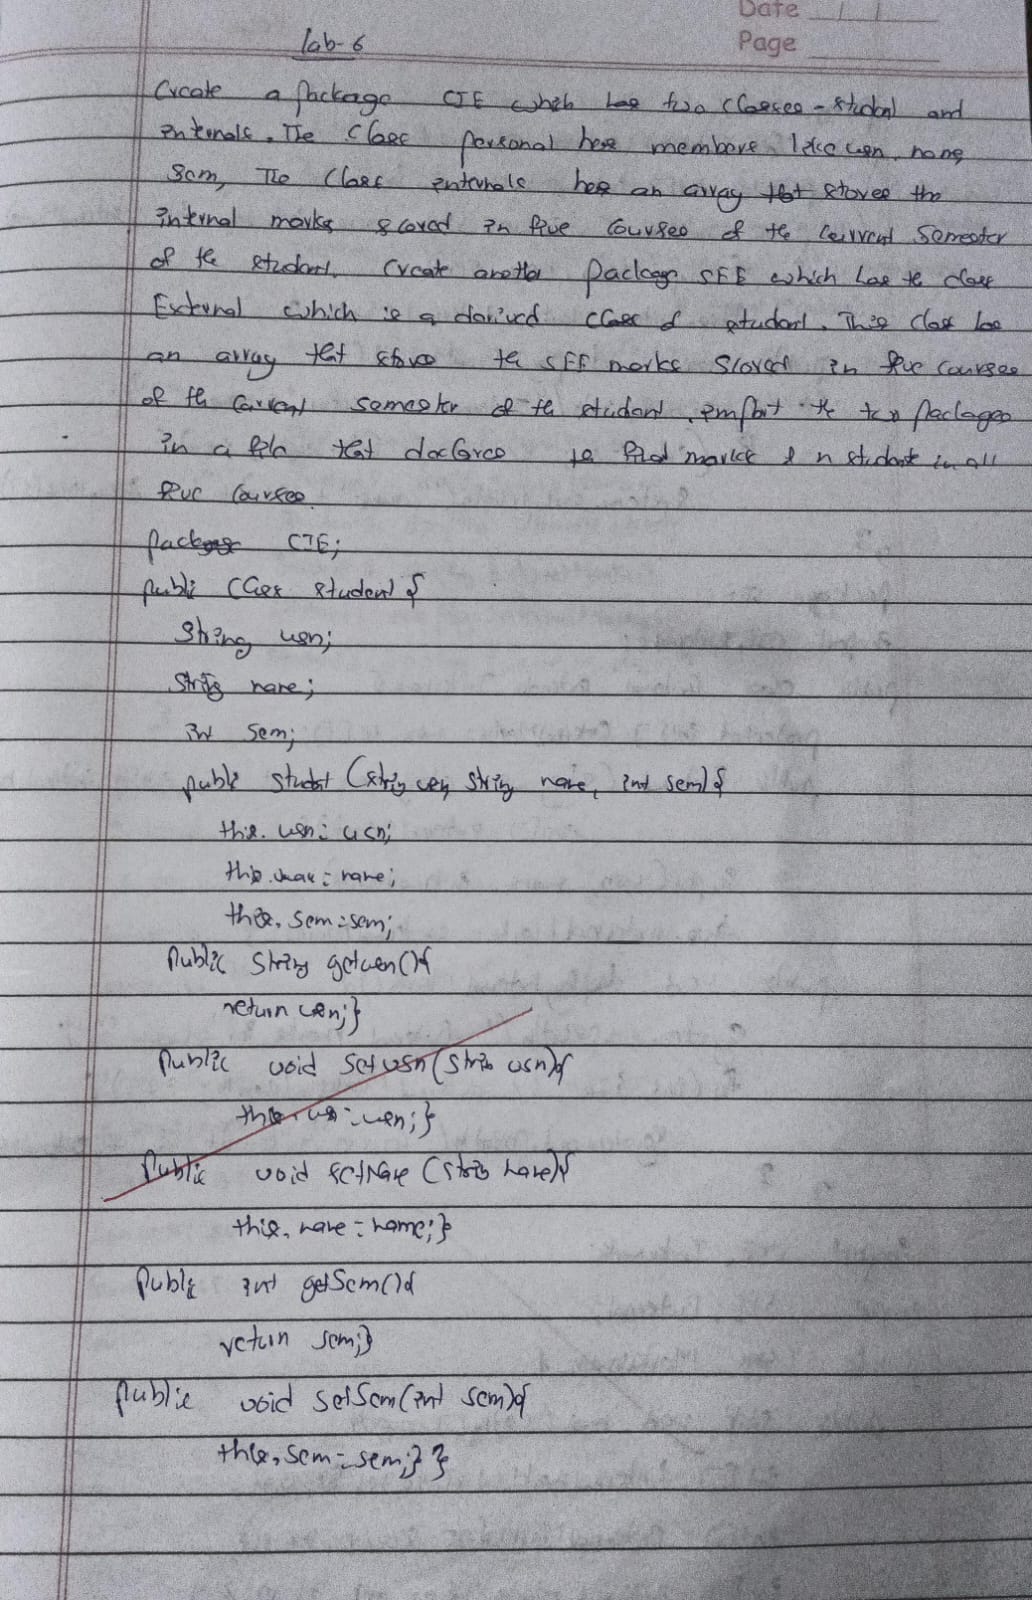 Date
Page
lab-6
Create a package CIE which has two classes - student and
internals. The class personal has members like usn, name
sem, The class internals has an array that stores the
internal marks scored in five courses of the current semester
of the student. Create another package SEE which has the class
External which is a derived class of student. This class has
an array that stores the SEE marks scored in five courses
of the current semester of the student. import the two packages
in a file that declares the final marks of n student in all
five courses.
package CIE;
public class student {
String usn;
String name;
int sem;
public student (string usn, String name, int sem) {
this.usn = usn;
this.name = name;
this.sem = sem;
public String getusn(){
return usn;}
public void setusn(String usn){
this.usn = usn;}
public void setName (String name){
this.name = name;}
public int getSem(){
return sem;}
public void setSem(int sem){
this.sem = sem;} }